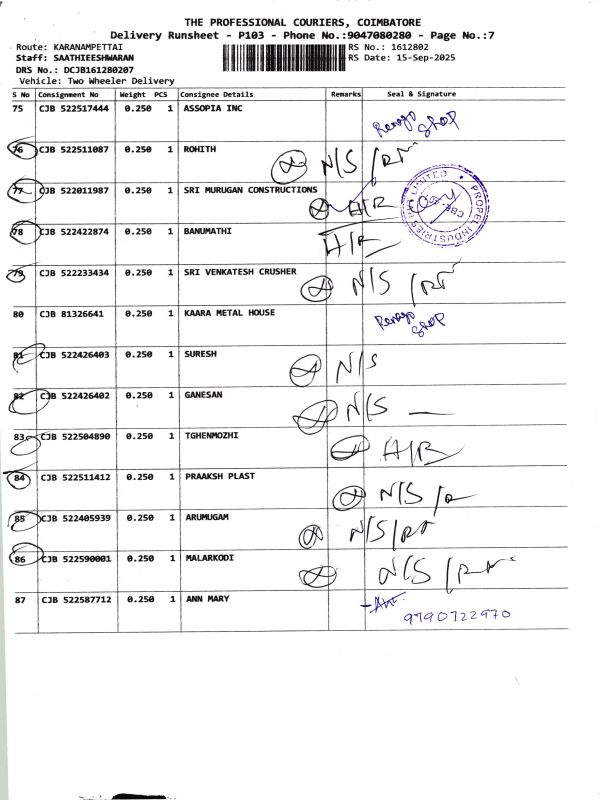 THE PROFESSIONAL COURIERS, COIMBATORE
Delivery Runsheet - P103 - Phone No.:9047080280 - Page No.:7
Route: KARANAMPETTAI RS No.: 1612802
Staff: SAATHIEESHWARAN RS Date: 15-Sep-2025
DRS No.: DCJB161280207
Vehicle: Two Wheeler Delivery
S No Consignment No Weight PCS Consignee Details Remarks Seal & Signature
75 CJB 522517444 0.250 1 ASSOPIA INC
Shop
76 CJB 522511087 0.250 1 ROHITH N/S
77 CJB 522011987 0.250 1 SRI MURUGAN CONSTRUCTIONS
PROPEL INDUSTRIES LIMITED
78 CJB 522422874 0.250 1 BANUMATHI
79 CJB 522233434 0.250 1 SRI VENKATESH CRUSHER N/S
80 CJB 81326641 0.250 1 KAARA METAL HOUSE
Shop
81 CJB 522426403 0.250 1 SURESH N/S
82 CJB 522426402 0.250 1 GANESAN N/S
83 CJB 522504890 0.250 1 TGHENMOZHI
84 CJB 522511412 0.250 1 PRAAKSH PLAST N/S
85 CJB 522405939 0.250 1 ARUMUGAM N/S
86 CJB 522590001 0.250 1 MALARKODI N/S
87 CJB 522587712 0.250 1 ANN MARY
9790722970